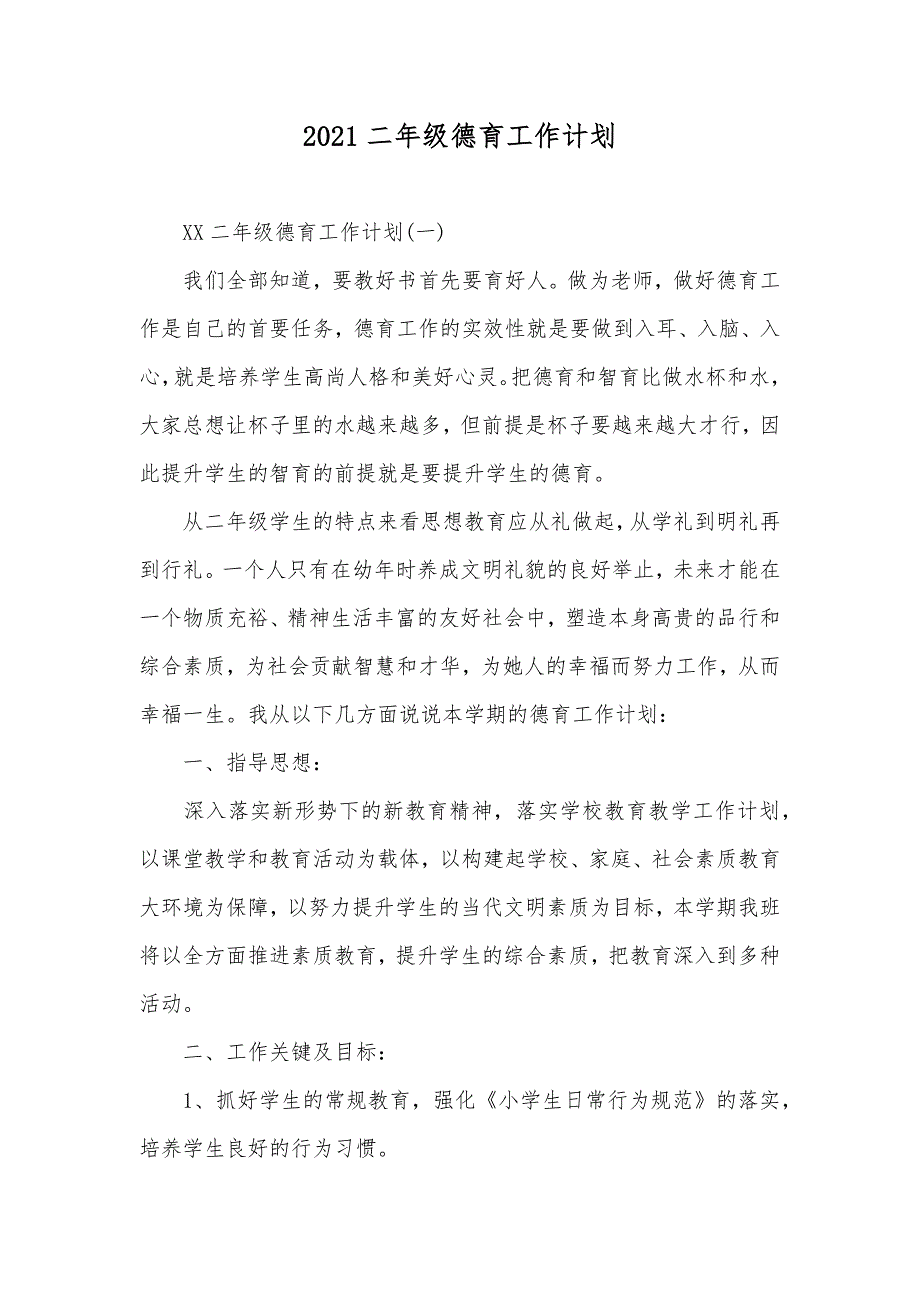 2021 二年级德育工作计划
XX 二年级德育工作计划(一)
我们全部知道，要教好书首先要育好人。做为老师，做好德育工
作是自己的首要任务，德育工作的实效性就是要做到入耳、入脑、入
心，就是培养学生高尚人格和美好心灵。把德育和智育比做水杯和水，
大家总想让杯子里的水越来越多，但前提是杯子要越来越大才行，因
此提升学生的智育的前提就是要提升学生的德育。
从二年级学生的特点来看思想教育应从礼做起，从学礼到明礼再
到行礼。一个人只有在幼年时养成文明礼貌的良好举止，未来才能在
一个物质充裕、精神生活丰富的友好社会中，塑造本身高贵的品行和
综合素质，为社会贡献智慧和才华，为她人的幸福而努力工作，从而
幸福一生。我从以下几方面说说本学期的德育工作计划：
一、指导思想：
深入落实新形势下的新教育精神，落实学校教育教学工作计划，
以课堂教学和教育活动为载体，以构建起学校、家庭、社会素质教育
大环境为保障，以努力提升学生的当代文明素质为目标，本学期我班
将以全方面推进素质教育，提升学生的综合素质，把教育深入到多种
活动。
二、工作关键及目标：
1、抓好学生的常规教育，强化《小学生日常行为规范》的落实，
培养学生良好的行为习惯。